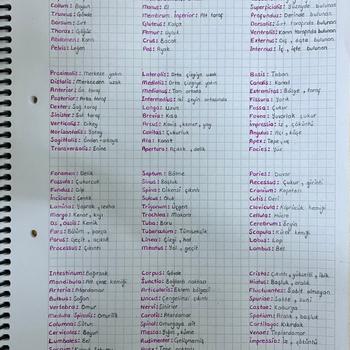 Collum: Boyun
Truncus: Gövde
Dorsum: Sırt
Thorax: Göğüs
Abdomen: Karın
Pelvis: Leğen
Manus: El
Membrum İnferior: Alt taraf
Gluteus: Kalça
Femur: Uyluk
Crus: Bacak
Pes: Ayak
Superficialis: Yüzeyde bulunan
Profundus: Derinde bulunan
Dorsalis: Sırt tarafında bulunan
Ventralis: Karın tarafında bulunan
Externus: Dış, dışta bulunan
Internus: İç, içte bulunan
Proximalis: Merkeze yakın
Distalis: Merkezden uzak
Anterior: Ön taraf
Posterior: Arka taraf
Dexter: Sağ taraf
Sinister: Sol taraf
Verticalis: Dikey
Horizontalis: Yatay
Sagittalis: Önden arkaya
Transversalis: Enine
Lateralis: Orta çizgiye uzak
Medialis: Orta çizgiye yakın
Medianus: Tam ortada
Intermedius: İki şeyin ortasında
Longus: Uzun
Brevis: Kısa
Arcus: Kavis, kemer, yay
Canitas: Çukurluk
Ala: Kanat
Apertura: Açıklık, delik
Basis: Taban
Canalis: Kanal
Extremitas: Bölge, taraf
Fissura: Yarık
Fossa: Çukur
Fovea: Yuvarlak çukur
Impressio: İz, çöküntü
Angulus: Açı, köşe
Apex: Tepe, uç
Facies: Yüz
Foramen: Delik
Fossula: Çukurcuk
Fundus: Dip
İncisura: Çentik
Lamina: Yaprak, levha
Margo: Kenar, kıyı
Os, ossis: Kemik
Pars: Bölüm, parça
Porus: Geçit, açıklık
Processus: Çıkıntı
Septum: Bölme
Sinus: Boşluk
Spina: Dikensi çıkıntı
Sulcus: Oluk
Trigonum: Üçgen
Trochlea: Makara
Tuba: Boru
Tuberculum: Tümsekcik
Linea: Çizgi, hat
Meatus: Yol, geçit
Paries: Duvar
Recessus: Çukur, girinti
Cranium: Kafatası
Cutis: Deri
Clavicula: Köprücük kemiği
Cellula: Hücre
Cerebrum: Beyin
Scapula: Kürek kemiği
Lobus: Lop
Lumbus: Bel
Intestinum: Bağırsak
Mandibula: Alt çene kemiği
Arteria: Atardamar
Bulbus: Soğan
Vertebra: Omur
Medulla Spinalis: Omurilik
Columna: Sütun
Cervicalis: Boyun
Lumbales: Bel
Corpus: Gövde
Junctio: Bağlantı noktası
Articularis: Eklem bölgesi
Uncus: Çengelimsi çıkıntı
Nervus: Sinir
Carotis: Atardamar
Spinal: Omurgaya ait
Massa: Kitle, küme
Rudimenter: Gelişmemiş
Crista: Çıkıntı, yükselti, ibik
Hiatus: Boşluk, aralık
Fluctuantes: Sabit olmayan
Spuriae: Sahte, suni
Costae: Kaburga
Spatium: Aralık, boşluk
Cartilago: Kıkırdak
Venae: Toplardamar
Impressio: İz, çöküntü